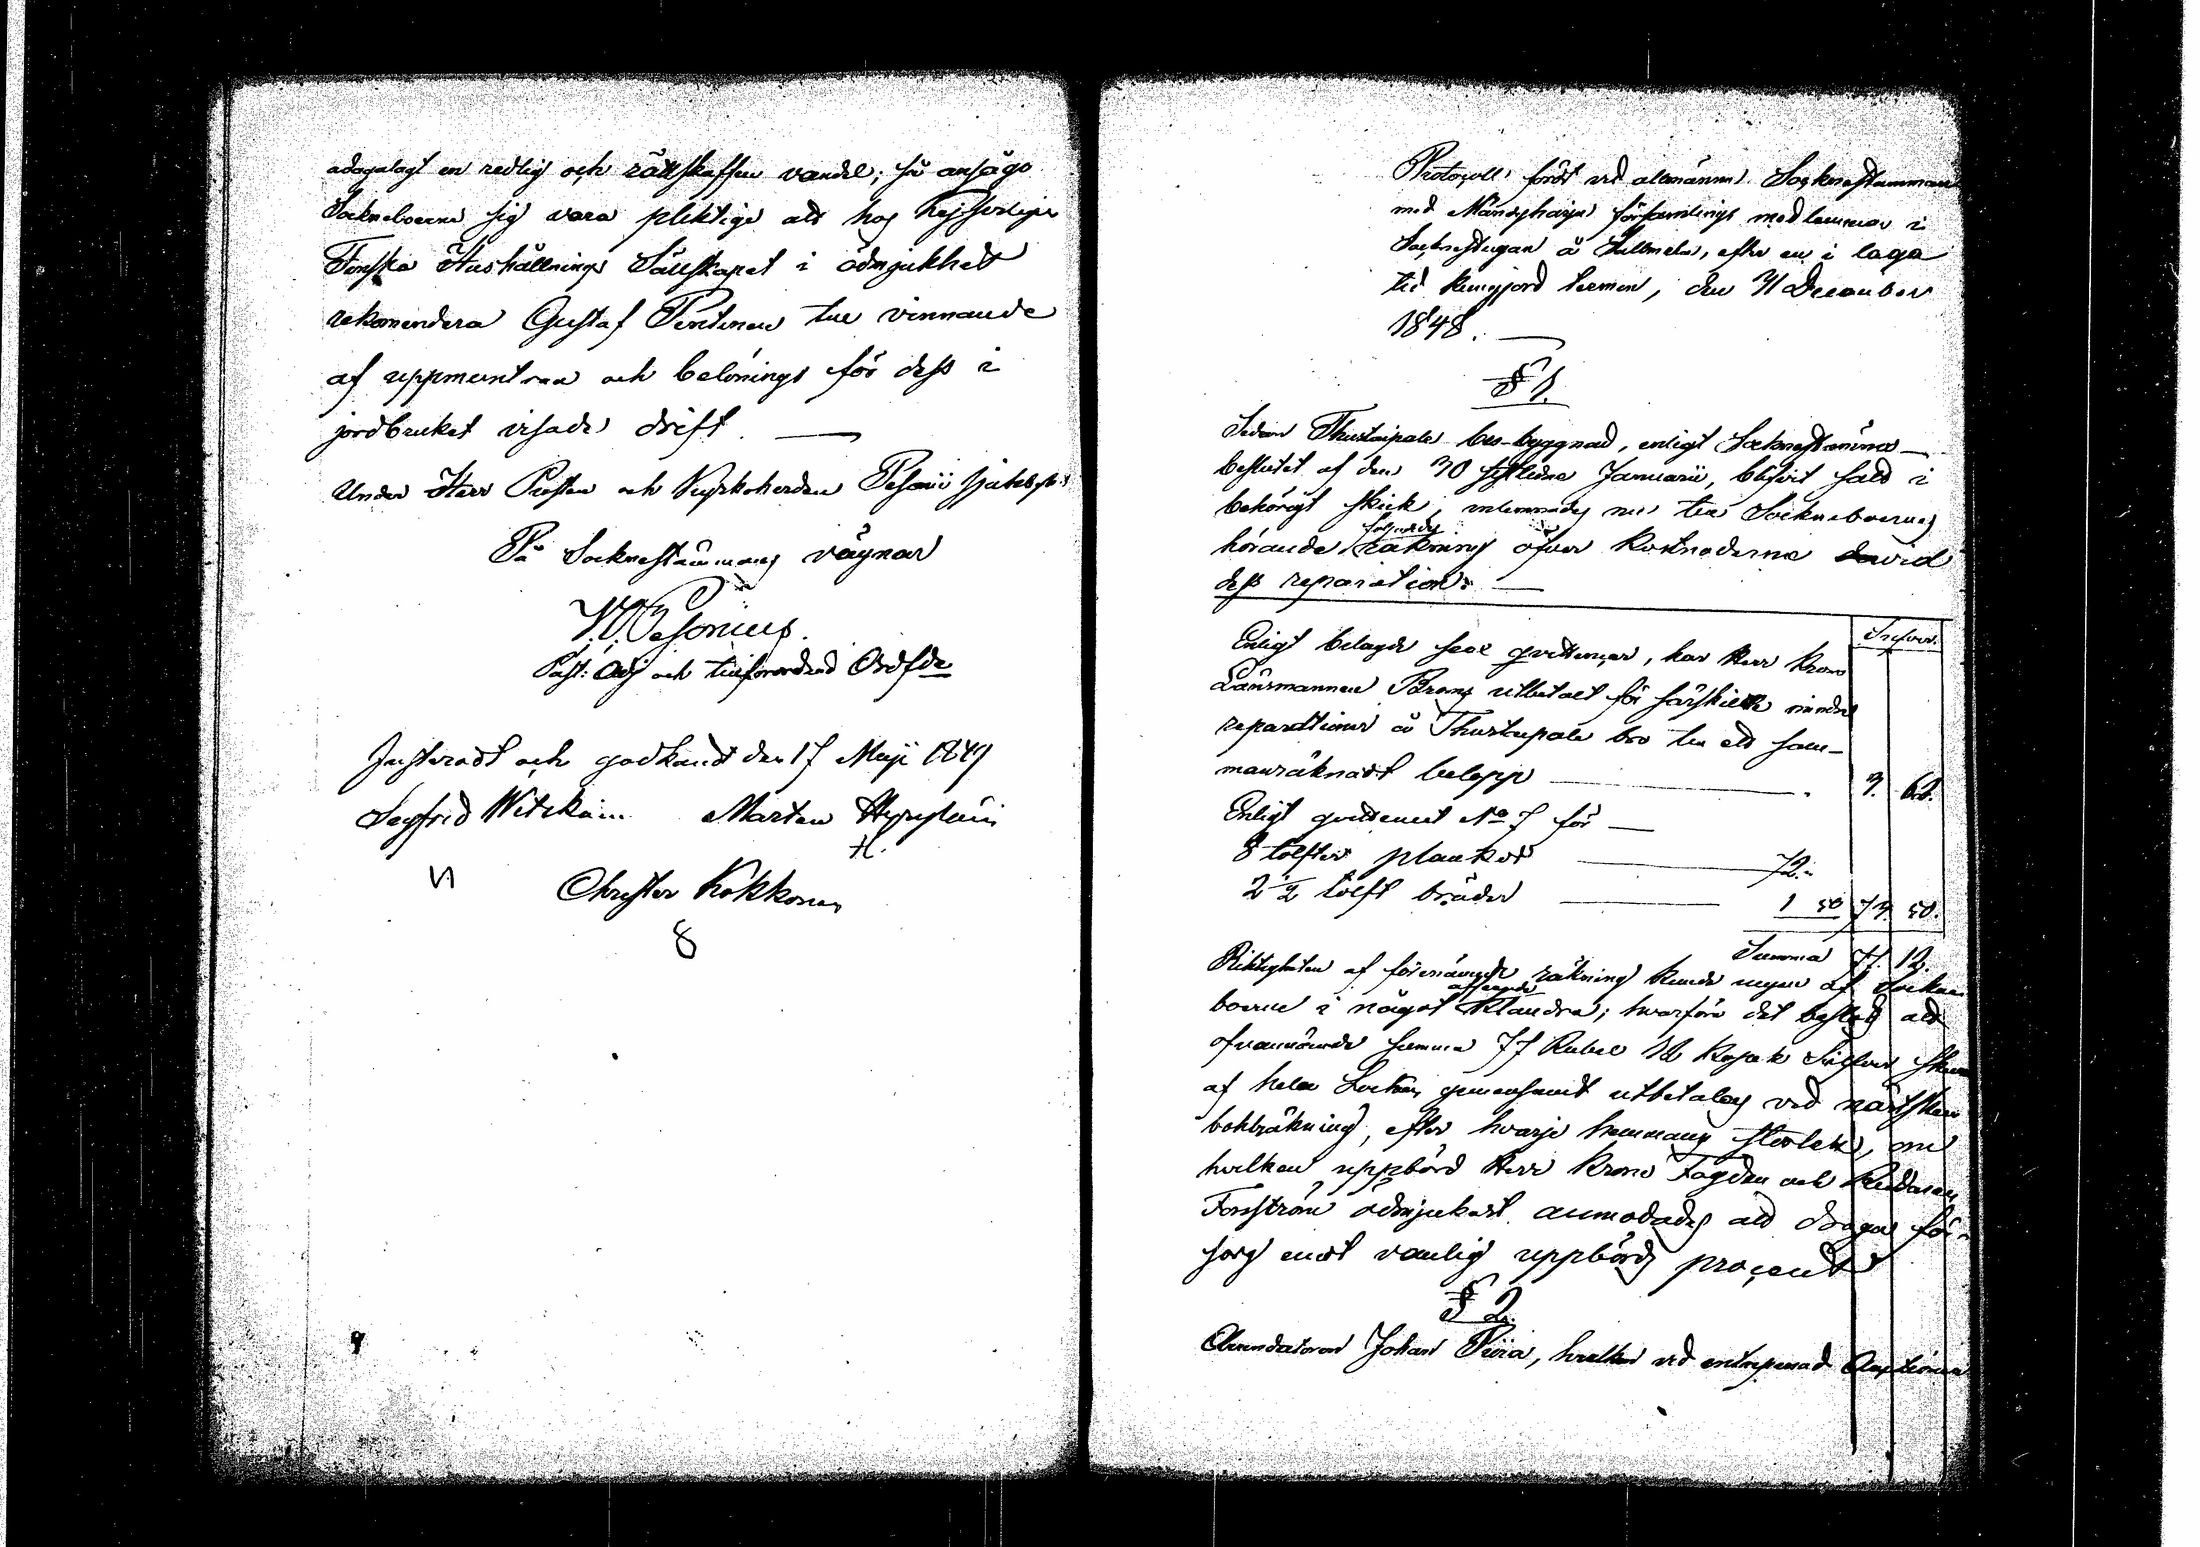 adagalagt en redlig och rättskaffen vandel; så ansågo
Sockneboerne sig vara pliktige att hos Kejserliga
Finska Hushållnings Sällskapet i ödmjukhet
rekomendera Gustaf Pentinen till vinnande
af uppmuntran och belönings för dess i
jordbruket visade drift. —
Under Herr Prosten och Kyrkoherden Pesonii
På Socknestämmans vägnar
Pesonius.
Past: Adj och tillförordnad Ordf de
Justeradt och godkandt den 17 Maji 1849
Segfrid Marten
H.
Christer Kokkonen
8
Protocoll fördt vid allmänna Socknestämman
med församlings medlemmar i
Socknestugan å, efter en i laga
tid kungjord termin, den 31 December
1848. —
§ 1.
Sedan bro-byggnad, enligt Socknestämmo-
beslutet af den 30 sistledne Januarii, blifvit satt i
behörigt skick, inlemnades nu till Sockneboernes
hörande följande räkning öfver kostnaderna vid
dess reparation: —
Silfver.
Enligt belagde qvittencer, har Herr Krono
Länsmannen utbetalt för särskilde mindre
reparationer å bro till ett sam-
manräknadt belopp — 3. 62.
Enligt qvittencet No 7 för —
8 tolfter plankor — 72.
2 1/2 tolft bräder — 1 50 73 50.
Summa 77. 12.
Riktigheten af förenämnde räkning kunde ingen af Sockne
boerne i något afseende klandra; hvarföre det beslöts att
ofvannämnde summa 77 Rubel 12 Kopek Silfver skulle
af hela Socknen gemensamt utbetalas vid
bokräkning, efter hvarje hemmans storlek, om
hvilken uppbörd Herr Krono Fogden och Riddaren
Forsström ödmjukast anmodades att draga för-
sorg emot vanlig uppbörds procent
§ 2.
Arrendatoren Johan, hvilken vid entreprenad Auctionen